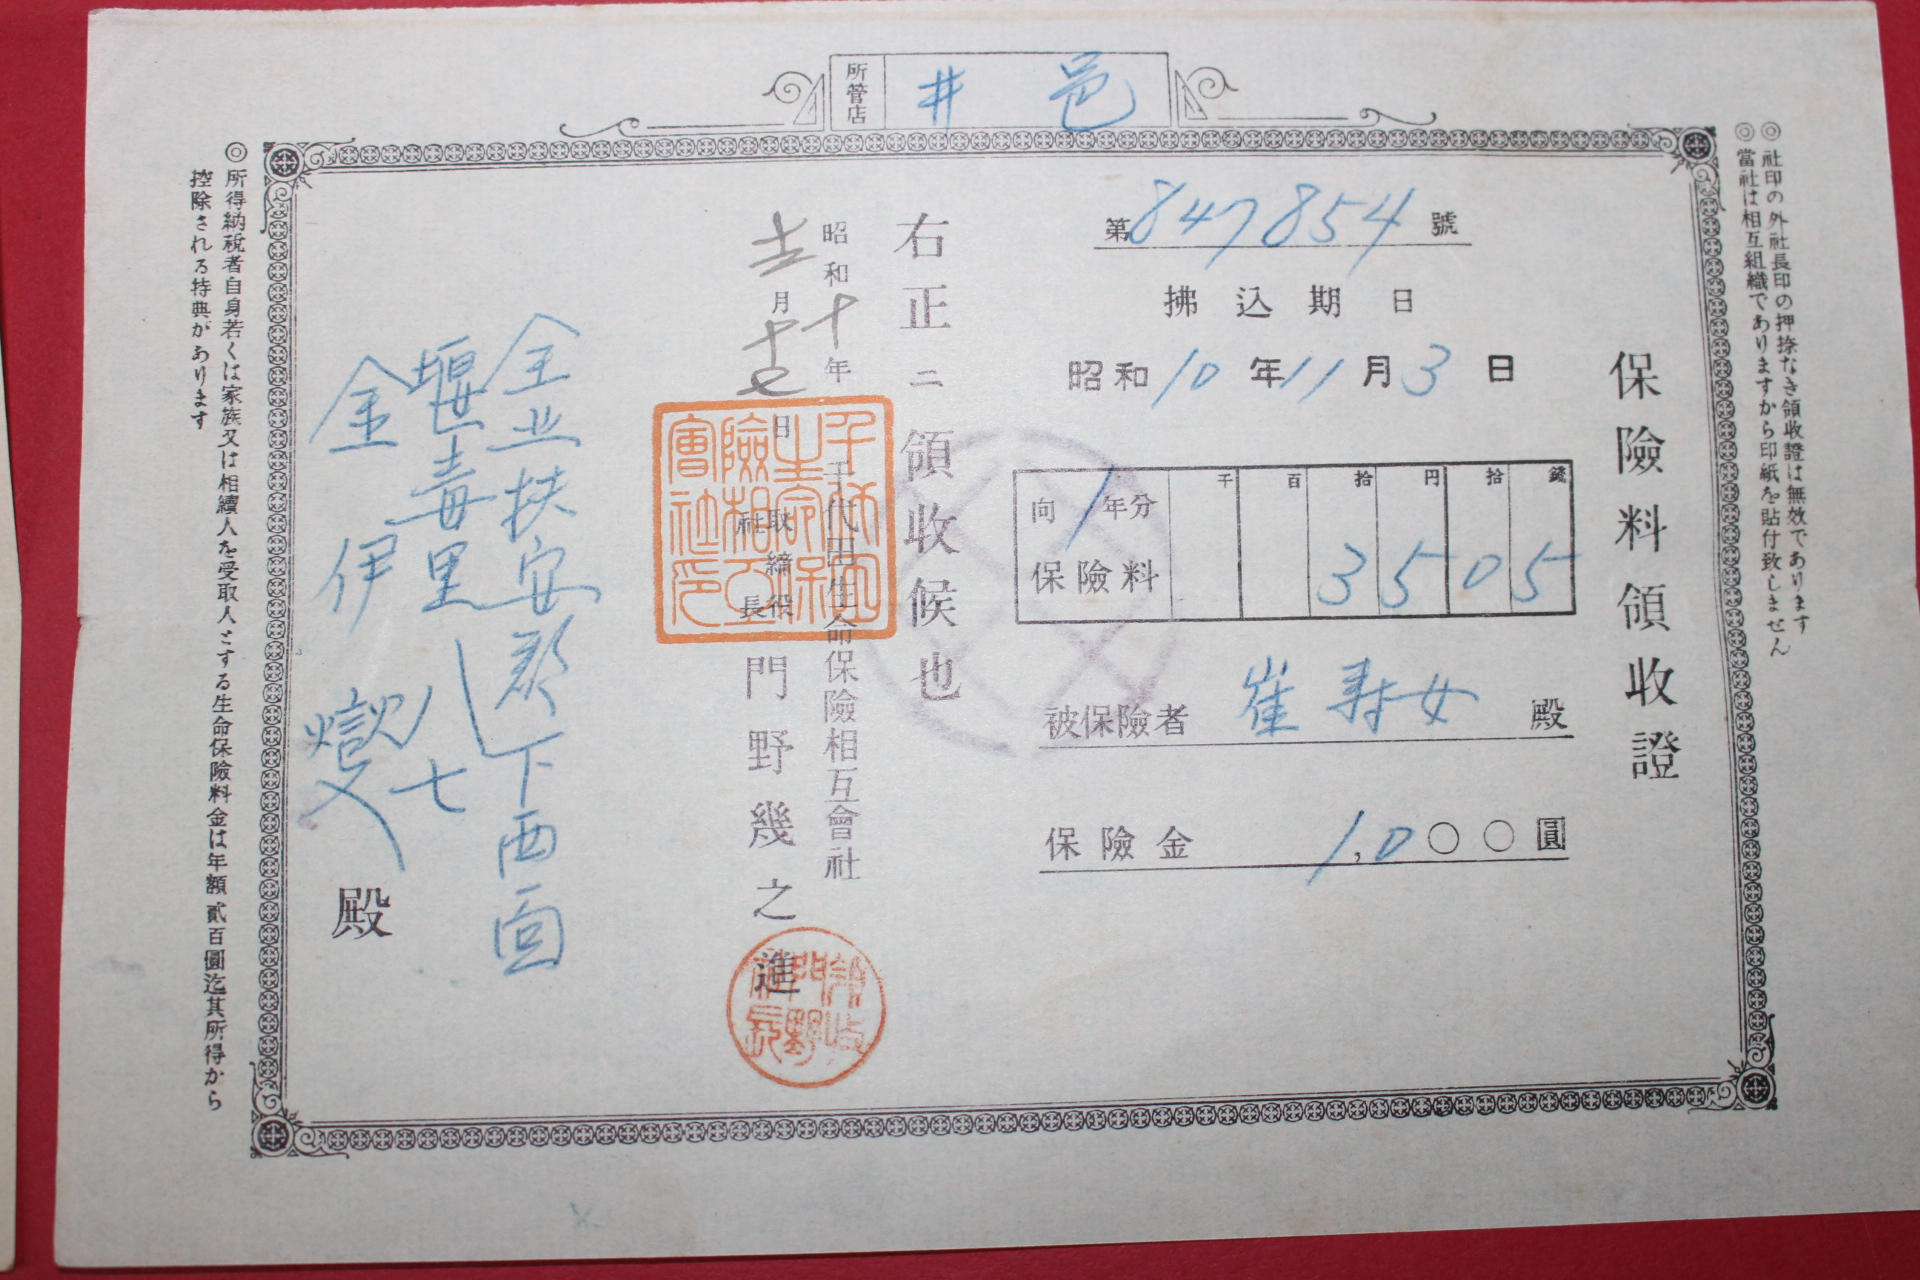 所管店 井邑
◎社印の外社長印の押捺なき領收證は無效であります
◎當社は相互組織でありますから印紙を貼付致しません
保險料領收證
第847854號
拂込期日
昭和10年11月3日
向1年分保險料
千 百 拾 円 拾 錢
3 5 0 5
被保險者 崔壽女 殿
保險金 1,000圓
右正ニ領收候也
昭和十年
十一月十七日
千代田生命保險相互會社
取締役社長 門野幾之進
全北扶安郡下西面
堰毒里 八七
金伊燮 殿
◎所得納稅者自身若くは家族又は相續人を受取人とする生命保險料金は年額貳百圓迄其所得から
控除される特典があります